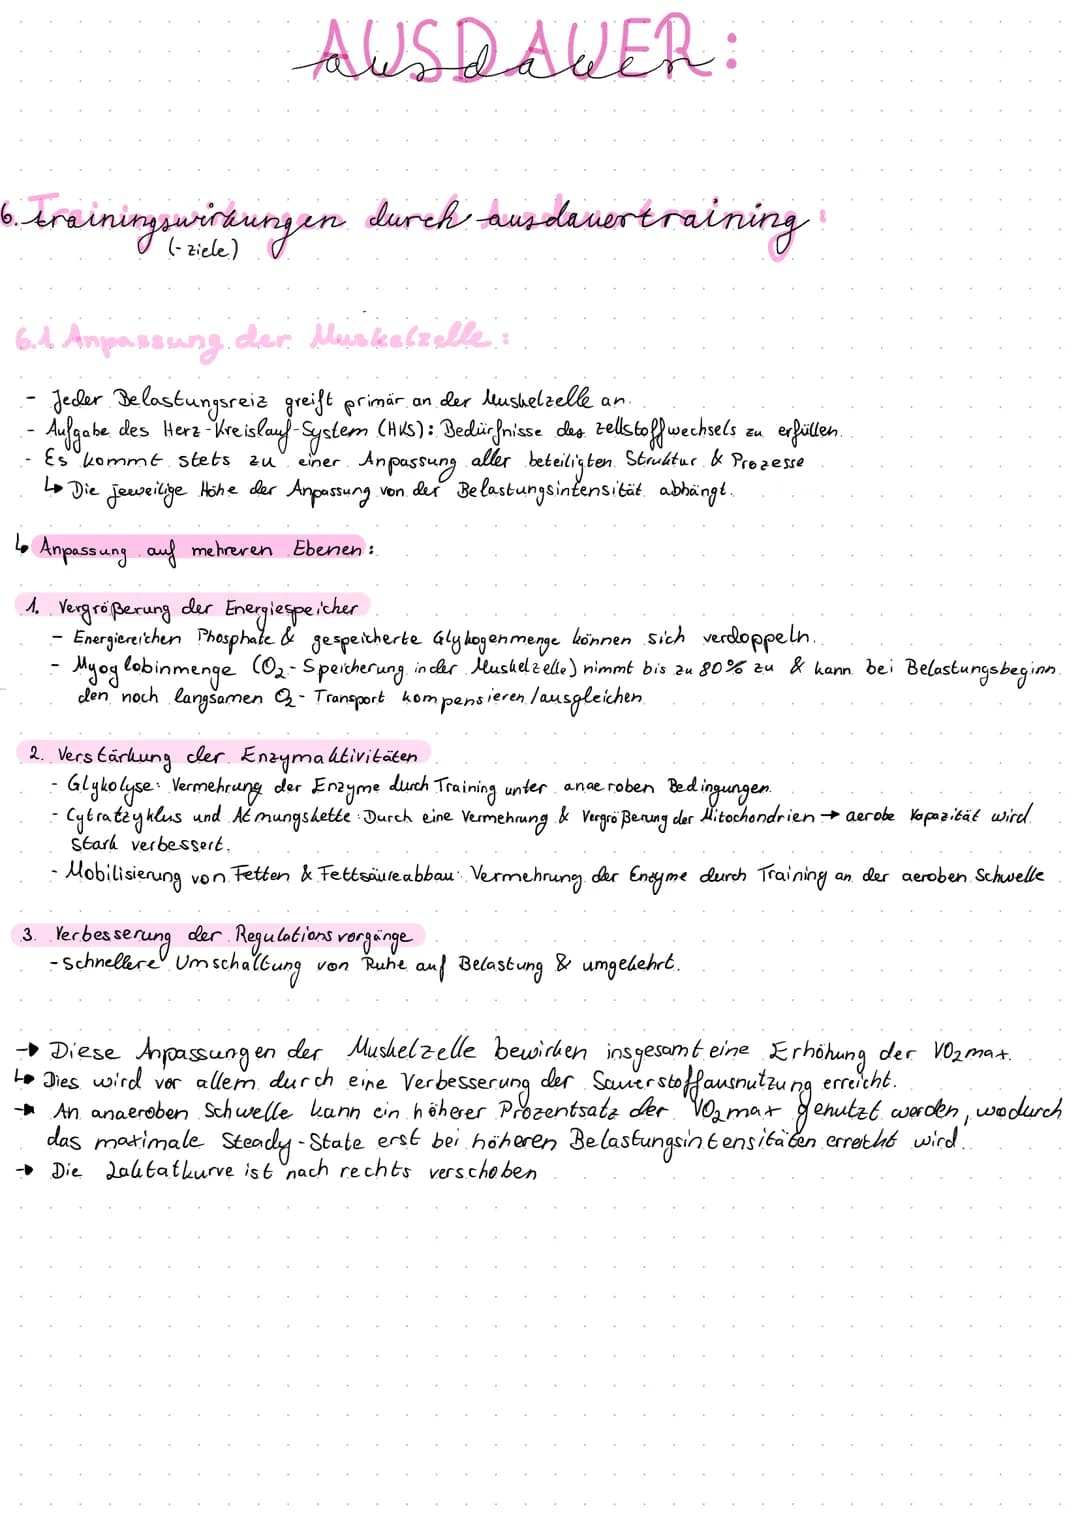 AUSDAUER:
ausdauer
6. Trainingswirkungen durch ausdauertraining:
(-ziele)
6.1 Anpassung der Muskelzelle:
- Jeder Belastungsreiz greift primär an der Muskelzelle an.
- Aufgabe des Herz-Kreislauf-System (HKS): Bedürfnisse des Zellstoffwechsels zu erfüllen.
- Es kommt stets zu einer Anpassung aller beteiligten Struktur & Prozesse
↳ Die jeweilige Höhe der Anpassung von der Belastungsintensität abhängt.
↳ Anpassung auf mehreren Ebenen:
1. Vergrößerung der Energiespeicher
- Energiereichen Phosphate & gespeicherte Glykogenmenge können sich verdoppeln.
- Myoglobinmenge (O2-Speicherung in der Muskelzelle) nimmt bis zu 80% zu & kann bei Belastungsbeginn
den noch langsamen O2-Transport kompensieren/ausgleichen
2. Verstärkung der Enzymaktivitäten
- Glykolyse: Vermehrung der Enzyme durch Training unter anaeroben Bedingungen.
- Cytratzyklus und Atmungskette: Durch eine Vermehrung & Vergrößerung der Mitochondrien → aerobe Kapazität wird
stark verbessert.
- Mobilisierung von Fetten & Fettsäureabbau: Vermehrung der Enzyme durch Training an der aeroben Schwelle
3. Verbesserung der Regulationsvorgänge
- Schnellere Umschaltung von Ruhe auf Belastung & umgekehrt.
→ Diese Anpassungen der Muskelzelle bewirken insgesamt eine Erhöhung der VO2max.
↳ Dies wird vor allem durch eine Verbesserung der Sauerstoffausnutzung erreicht.
→ An anaeroben Schwelle kann ein höherer Prozentsatz der VO2max genutzt werden, wodurch
das maximale Steady-State erst bei höheren Belastungsintensitäten erreicht wird.
→ Die Laktatkurve ist nach rechts verschoben